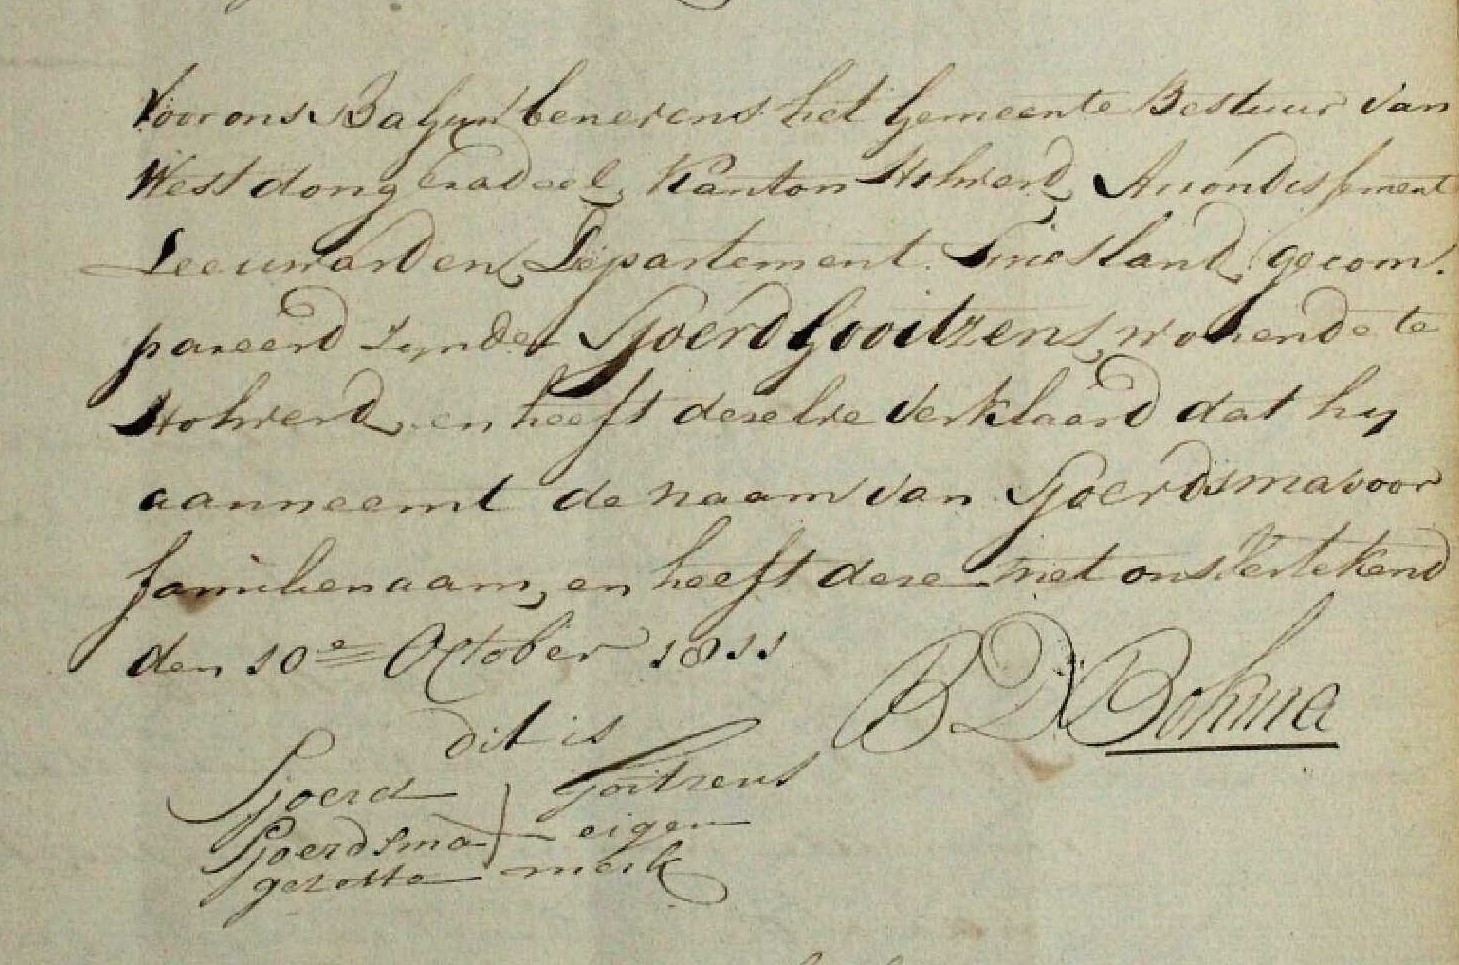 Voor ons Baljuw benevens het Gemeente Bestuur van
Westdongeradeel, Kanton Holwerd, Arrondissement
Leeuwarden, Departement Vriesland, gecom¬
pareerd zynde Sjoerd Gooitzens, wonende te
Holwerd, en heeft dezelve verklaard dat hy
aanneemt de naam van Sjoerdsma voor
familienaam, en heeft deze met ons vertekend
den 10e October 1811
B D Bokma
dit is
Sjoerd Goitzens
Sjoerdsma eigen
gezette merk